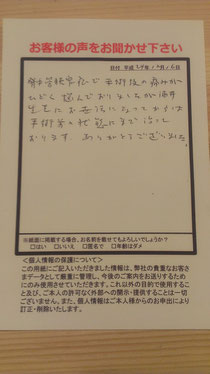 お客様の声をお聞かせ下さい
日付 平成
手術後の痛みが
ひどく 悩んでおりましたが 酒井
先生にお世話になって
手術前と 状態にまで 治って
おります。ありがとうございました。
※紙面に掲載する場合、お名前を載せてもよろしいでしょうか?
□はい □いいえ □匿名で □年齢はダメ
<個人情報の保護について>
この用紙にご記入いただきました情報は、弊社の貴重なお客さ
まデータとして厳重に管理し、今後のご案内をお送りするため
にのみ使用させていただきます。これ以外の目的で使用するこ
と及び、ご本人の許可なく外部への開示・提供することは一切
ございません。また、個人情報はご本人様からのお申出により
訂正・削除いたします。